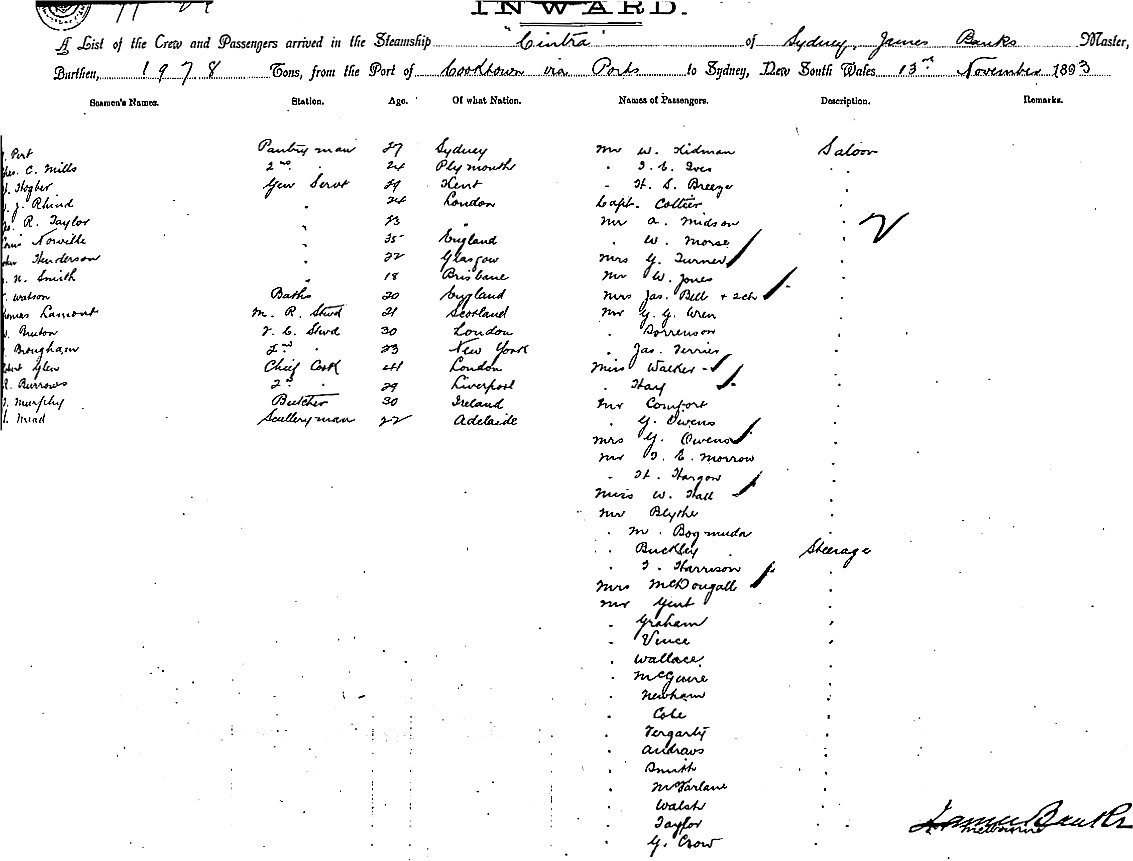 INWARD.
A List of the Crew and Passengers arrived in the Steamship "Cintra" of Sydney, James Banks Master,
Burthen, 1978 Tons, from the Port of Cooktown via Ports to Sydney, New South Wales 13th November 1893
Seamen's Names. Station. Age. Of what Nation. Names of Passengers. Description. Remarks.
Port Pantry man 27 Sydney Mr W. Kidman Saloon
C. Mills 2nd " 24 Plymouth " T. E. Ives "
Gen Servt 29 Kent " H. S. Breeze "
J. Rhind " 24 London Capt. Collier "
R. Taylor " 23 " Mr A. Midson "
Norville " 35 England " W. Morse "
Henderson " 22 Glasgow Mrs G. Turner "
N. Smith " 18 Brisbane Mr W. Jones "
Watson Baths 20 England Mrs Jas. Bell + 2ch "
Thomas Lamont M. R. Stwd 21 Scotland Mr G. G. Wren "
F. C. Stwd 30 London " Sorrenson "
Brougham 2nd " 23 New York " Jas. "
Glen Chief Cook 41 London Miss Walker "
R. Burrows 2nd " 29 Liverpool " Hay "
Murphy Butcher 30 Ireland Mr Comfort "
Mead Scullery man 22 Adelaide " G. Owens "
Mrs G. Owens "
Mr T. E. Morrow "
" H. Hargow "
Miss W. Hall "
Mr Blythe "
" M. Bogmuda "
" Buckley Steerage
" T. Harrison "
Mrs McDougall "
Mr Gent "
" Graham "
" Vince "
" Wallace "
" McGuire "
" Newham "
" Cole "
" Fergarty "
" Andrews "
" Smith "
" McFarlane "
" Walsh "
" Taylor "
" G. Crow "
James Banks
Melbourne